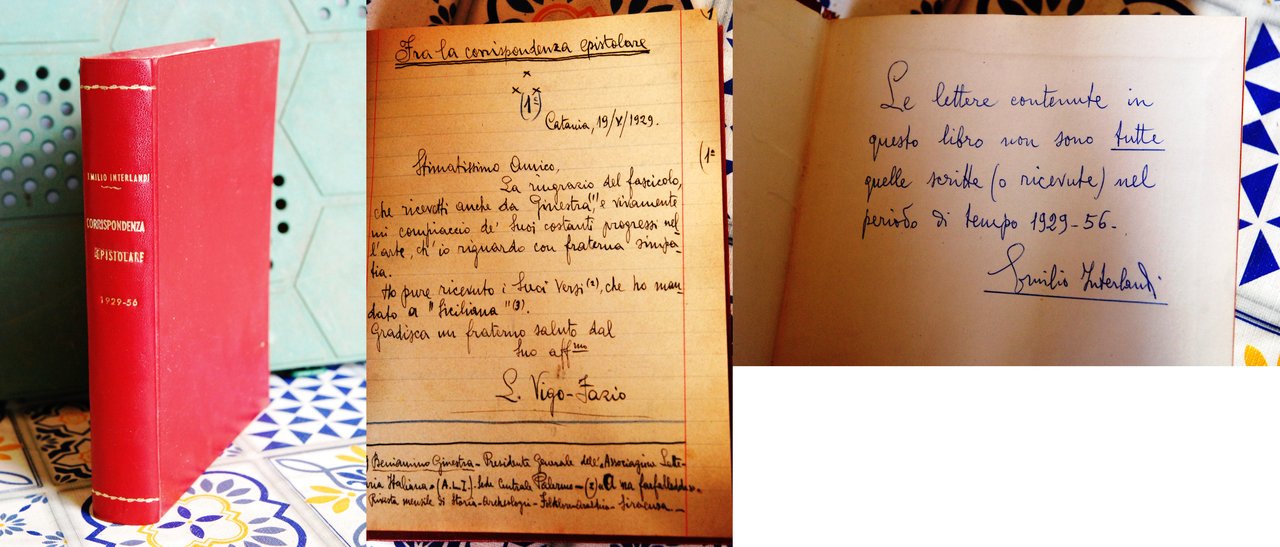 EMILIO INTERLANDI
CORRISPONDENZA
EPISTOLARE
1929-56
1
Fra la corrispondenza epistolare
x
x x
(1ª)
Catania, 19/V/1929.
(1ª
Stimatissimo Amico,
La ringrazio del fascicolo,
che ricevetti anche da Ginestra(1), e vivamente
mi compiaccio de' Suoi costanti progressi nel
l'arte, ch'io riguardo con fraterna simpa-
tia.
Ho pure ricevuto i Suoi Versi(2), che ho man
dato a "Siciliana"(3).
Gradisca un fraterno saluto dal
Suo affmo
L. Vigo-Fazio
) Beniamino Ginestra - Presidente Generale dell'Associazione Lette-
raria Italiana - (A.L.I.) - Sede Centrale Palermo - (2) "A na farfalledda" -
Rivista mensile di Storia - Archeologia - Folklore - Siracusa. -
Le lettere contenute in
questo libro non sono tutte
quelle scritte (o ricevute) nel
periodo di tempo 1929-56-.
Emilio Interlandi